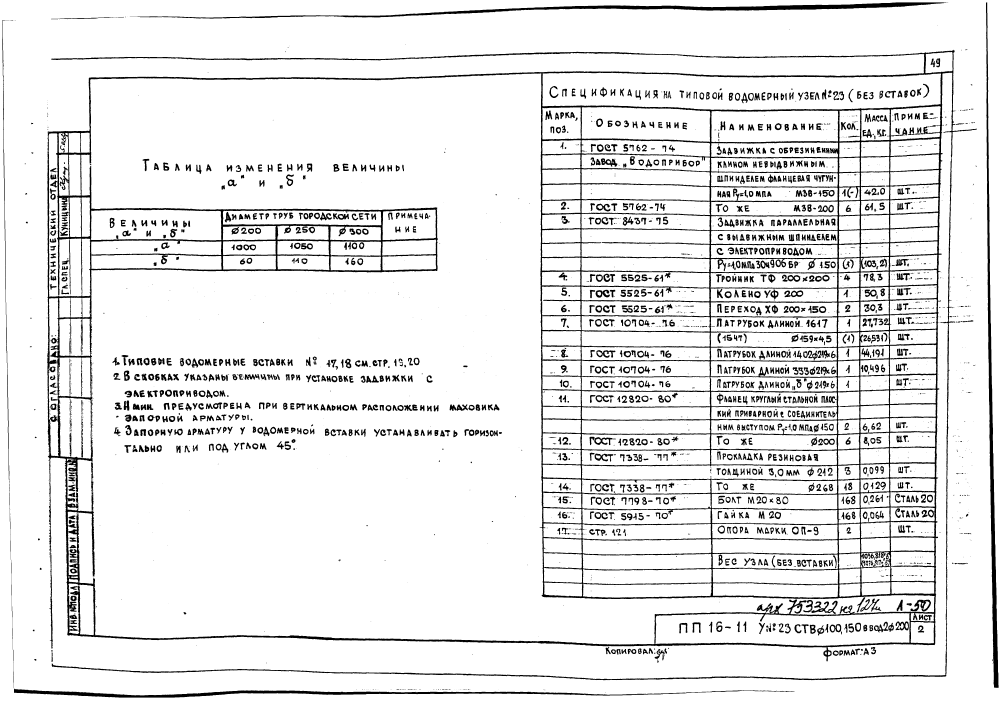 49
Таблица изменения величины
„а" и „б"
Величины „а" и „б" | Диаметр труб городской сети | Примечание
Ø200 | Ø250 | Ø300
„а" | 1000 | 1050 | 1100
„б" | 60 | 110 | 160
1. Типовые водомерные вставки № 17,18 см.стр. 19,20
2. В скобках указаны величины при установке задвижки с
электроприводом.
3. Н мин. предусмотрена при вертикальном расположении маховика
запорной арматуры.
4. Запорную арматуру у водомерной вставки устанавливать горизон-
тально или под углом 45°.
Спецификация на типовой водомерный узел №23 (без вставок)
Марка, поз. | Обозначение | Наименование | Кол. | Масса ед., кг. | Примечание
1. | ГОСТ 5762-74 | Задвижка с обрезиненным
Завод „Водоприбор" | клином невыдвижным
шпинделем фланцевая чугун-
ная Ру=1,0 мпа М3В-150 | 1(-) | 42.0 | шт.
2. | ГОСТ 5762-74 | То же М3В-200 | 6 | 61,5 | шт.
3. | ГОСТ 8437-75 | Задвижка параллельная
с выдвижным шпинделем
с электроприводом
Ру=1,0мпа 30ч906 бр Ø 150 | (1) | (103,2) | шт.
4. | ГОСТ 5525-61* | Тройник ТФ 200×200 | 4 | 78,3 | шт.
5. | ГОСТ 5525-61* | Колено УФ 200 | 1 | 50,8 | шт.
6. | ГОСТ 5525-61* | Переход ХФ 200×150 | 2 | 30,3 | шт.
7. | ГОСТ 10704-76 | Патрубок длиной 1617 | 1 | 27,732 | шт.
(1547) Ø159×4,5 | (1) | (26,531) | шт.
8. | ГОСТ 10704-76 | Патрубок длиной 1402 Ø219×6 | 1 | 44,191 | шт.
9. | ГОСТ 10704-76 | Патрубок длиной 333 Ø219×6 | 1 | 10,496 | шт.
10. | ГОСТ 10704-76 | Патрубок длиной „б" Ø219×6 | 1 | шт.
11. | ГОСТ 12820-80* | Фланец круглый стальной плос-
кий приварной с соединитель-
ным выступом Ру=1,0 мпа Ø150 | 2 | 6,62 | шт.
12. | ГОСТ 12820-80* | То же Ø200 | 6 | 8,05 | шт.
13. | ГОСТ 7338-77* | Прокладка резиновая
толщиной 3,0мм Ø212 | 3 | 0,099 | шт.
14. | ГОСТ 7338-77* | То же Ø268 | 18 | 0,129 | шт.
15. | ГОСТ 7798-70* | Болт М20×80 | 168 | 0,261 | Сталь 20
16. | ГОСТ 5915-70* | Гайка М20 | 168 | 0,064 | Сталь 20
17. | стр. 121 | Опора марки ОП-9 | 2 | шт.
Вес узла (без вставки)
арх 753322 Л-50
ПП 16-11 У№23 СТВ Ø100,150 ввод 2Ø200 | Лист 2
Копировал:
формат: А3
Технический отдел
Гл.спец. Куницина
Согласовано:
Инв.№подл. Подпись и дата Взам.инв.№